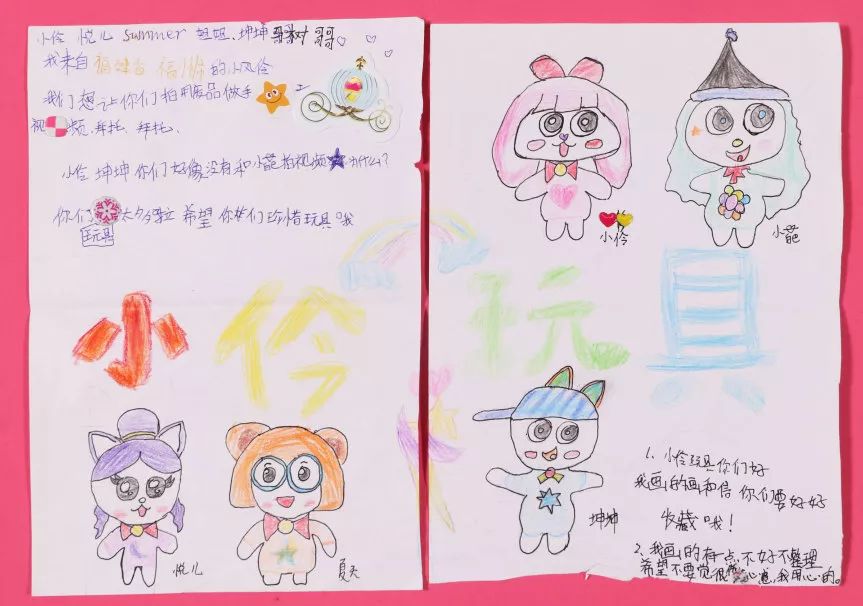 小伶 悦儿 summer 姐姐、坤坤 树 哥哥
我来自福建省 福州 的小风伶
我们想让你们拍用废品做手
视频 拜托、拜托、
小伶 坤坤 你们好像没有和小葩拍视频 为什么?
你们 太多了 希望 你们珍惜玩具 哦
玩具
小伶
小葩
小伶玩具
悦儿
夏天
坤坤
1、小伶玩具你们好
我画的画和信 你们要好好
收藏 哦!
2、我画的有一点不好不整理
希望不要觉 我用心的。